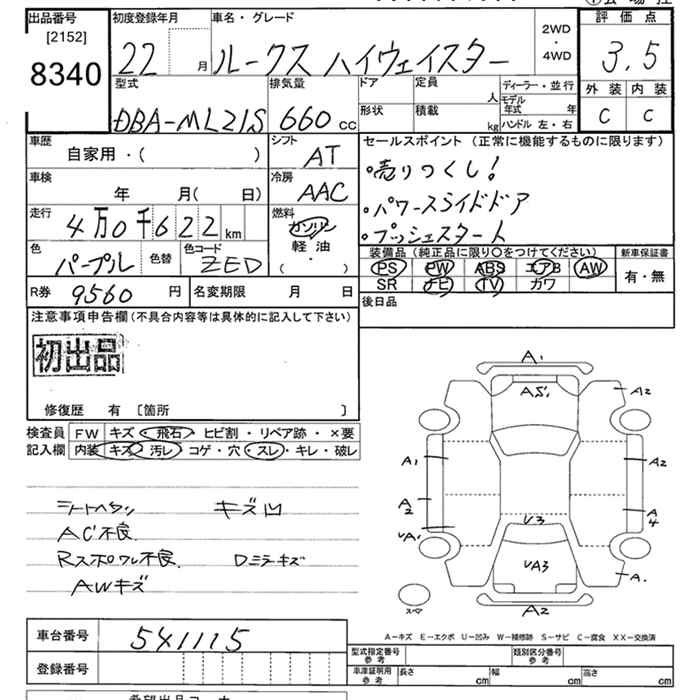 出品番号 初度登録年月 車名・グレード 評価点
[2152] 2WD
8340 22 月 ルークス ハイウェイスター ・ 3.5
4WD
型式 排気量 ドア 定員 ディーラー・並行 外装 内装
人 モデル年式 年
DBA-ML21S 660 cc 形状 積載 kg ハンドル 左・右 C C
車歴 シフト セールスポイント (正常に機能するものに限ります)
自家用・( ) AT ・売りつくし!
車検 冷房
年 月( 日) AAC ・パワースライドドア
走行 燃料
4万0千622km ガソリン ・プッシュスタート
色 色替 色コード 軽油 装備品 (純正品に限り○をつけてください) 新車保証書
パープル ZED ・( ) PS PW ABS エアB AW 有・無
R券 9560 円 名変期限 月 日 SR ナビ TV カワ
注意事項申告欄 (不具合内容等は具体的に記入して下さい) 後日品
初出品
修復歴 有 [箇所 ]
検査員 FW キズ・飛石・ヒビ割・リペア跡・×要
記入欄 内装 キズ 汚レ コゲ・穴・スレ・キレ・破レ
A1
A5 A2
A1 A2
A2 A4
V3
VA3 A
A2
シートヘタリ キズ凹
AC不良
不良. Dミラーキズ
AWキズ
スペア
A−キズ E−エクボ U−凹み W−補修跡 S−サビ C−腐食 XX−交換済
車台番号 541115 型式指定番号 参考 類別区分番号 参考
登録番号 車庫証明用 参考 長さ cm 幅 cm 高さ cm